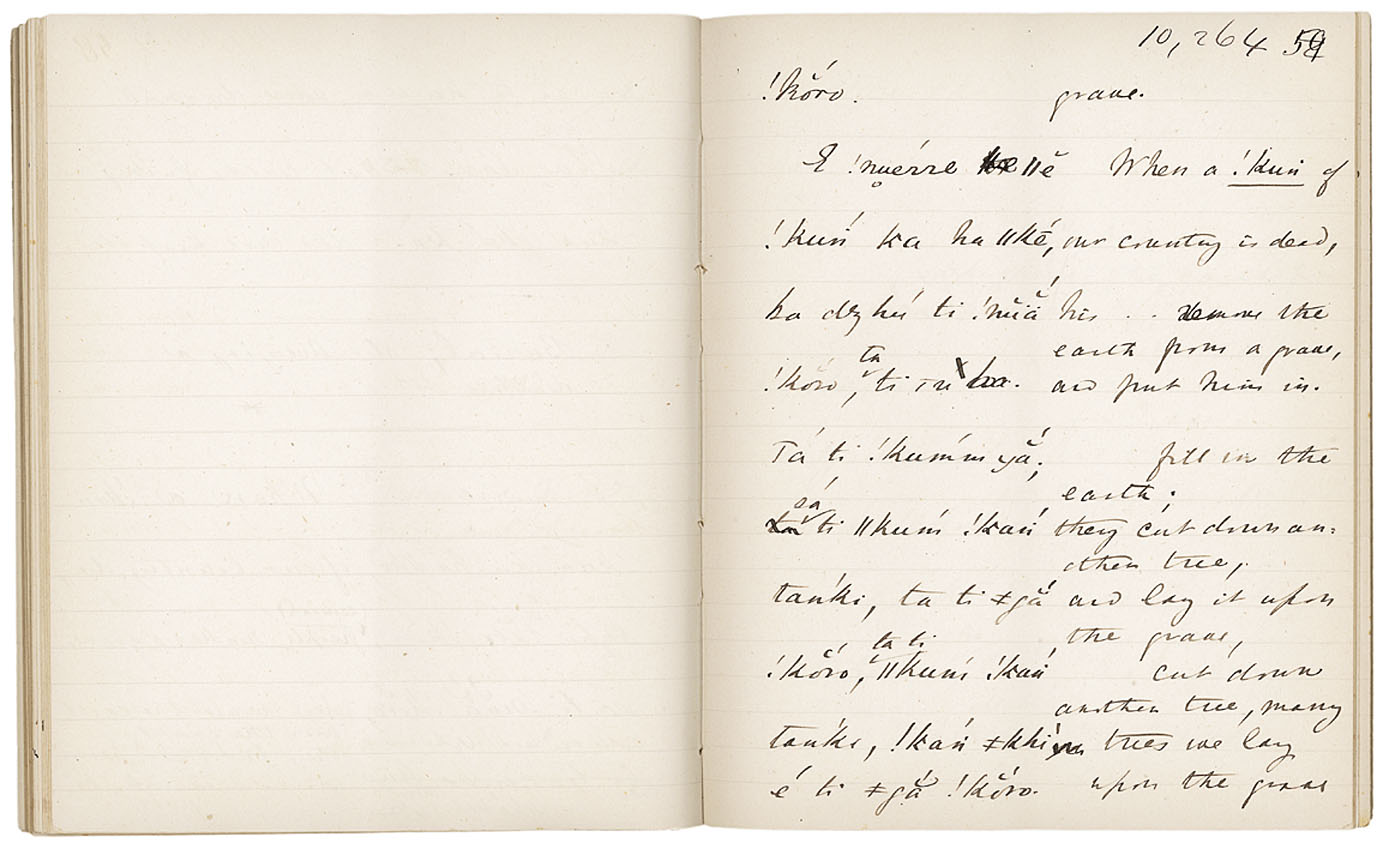 10,264 59
!kŏ́ro. grave.
E !nu̥érre llĕ When a !kuń of
!kuń ka ha llké, our country is dead,
ha dzhú ti !nŭā̆́ his . . remove the
earth from a grave,
ta
!kŏro, ti тu ha. and put him in.
Tá ti !kuḿm yā̆́; fill in the
earth;
sá
ti llkuḿ !kań they cut down an=
other tree,
tańki, ta ti ≠gā̆́ and lay it upon
ta ti the grave,
!kŏ́ro, llkuḿ !kań cut down
another tree, many
tańki, !kań ≠khí trees we lay
é ti ≠gā̆́ !kŏ́ro. upon the grave